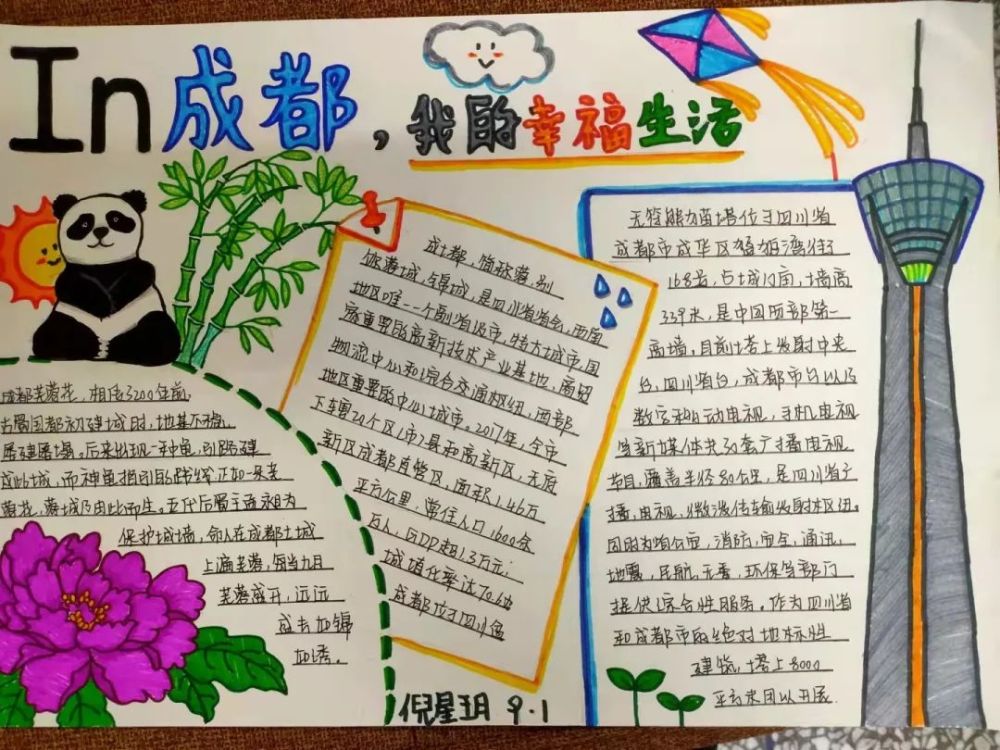 In成都，我的幸福生活
成都芙蓉花，相传3200年前，
古蜀国都初建城时，地基不稳，
屡建屡塌。后来出现一神龟，引路建
成此城，而神龟指引的路线正如一朵芙
蓉花，蓉城乃由此而生。五代后蜀主孟永为
保护城墙，命人在成都土城
上遍芙蓉，每当九月
芙蓉盛开，远远
望去如锦
如绣。
成都，简称蓉，别
称蓉城，锦城，是四川省省会，西南
地区唯一一个副省级市，特大城市，国
家重要的高新技术产业基地，商贸
物流中心和综合交通枢纽，西部
地区重要的中心城市。2017年，全市
下车要20个区(市)县和高新区，天府
新区成都直管区，面积1.46万
平方公里，常住人口1600余
万人，GDP超1.3万元；
城填化率达70.6%
成都位于四川盆
无
四川省
成都市成华区猛追湾街
168号，占城10亩，塔高
339米，是中国西部第一
高塔，目前塔上发射中央
台，四川省台，成都市台以及
数字移动电视，手机电视
等新媒体共30套广播电视
节目，覆盖半径80公里，是四川省广
播，电视，微波传输发射枢纽。
同时为省公安，消防，安全，通讯，
地震，民航，无委，环保等部门
提供综合性服务。作为四川省
和成都市的绝对地标性
建筑，塔上8000
平方米
倪星玥 9.1